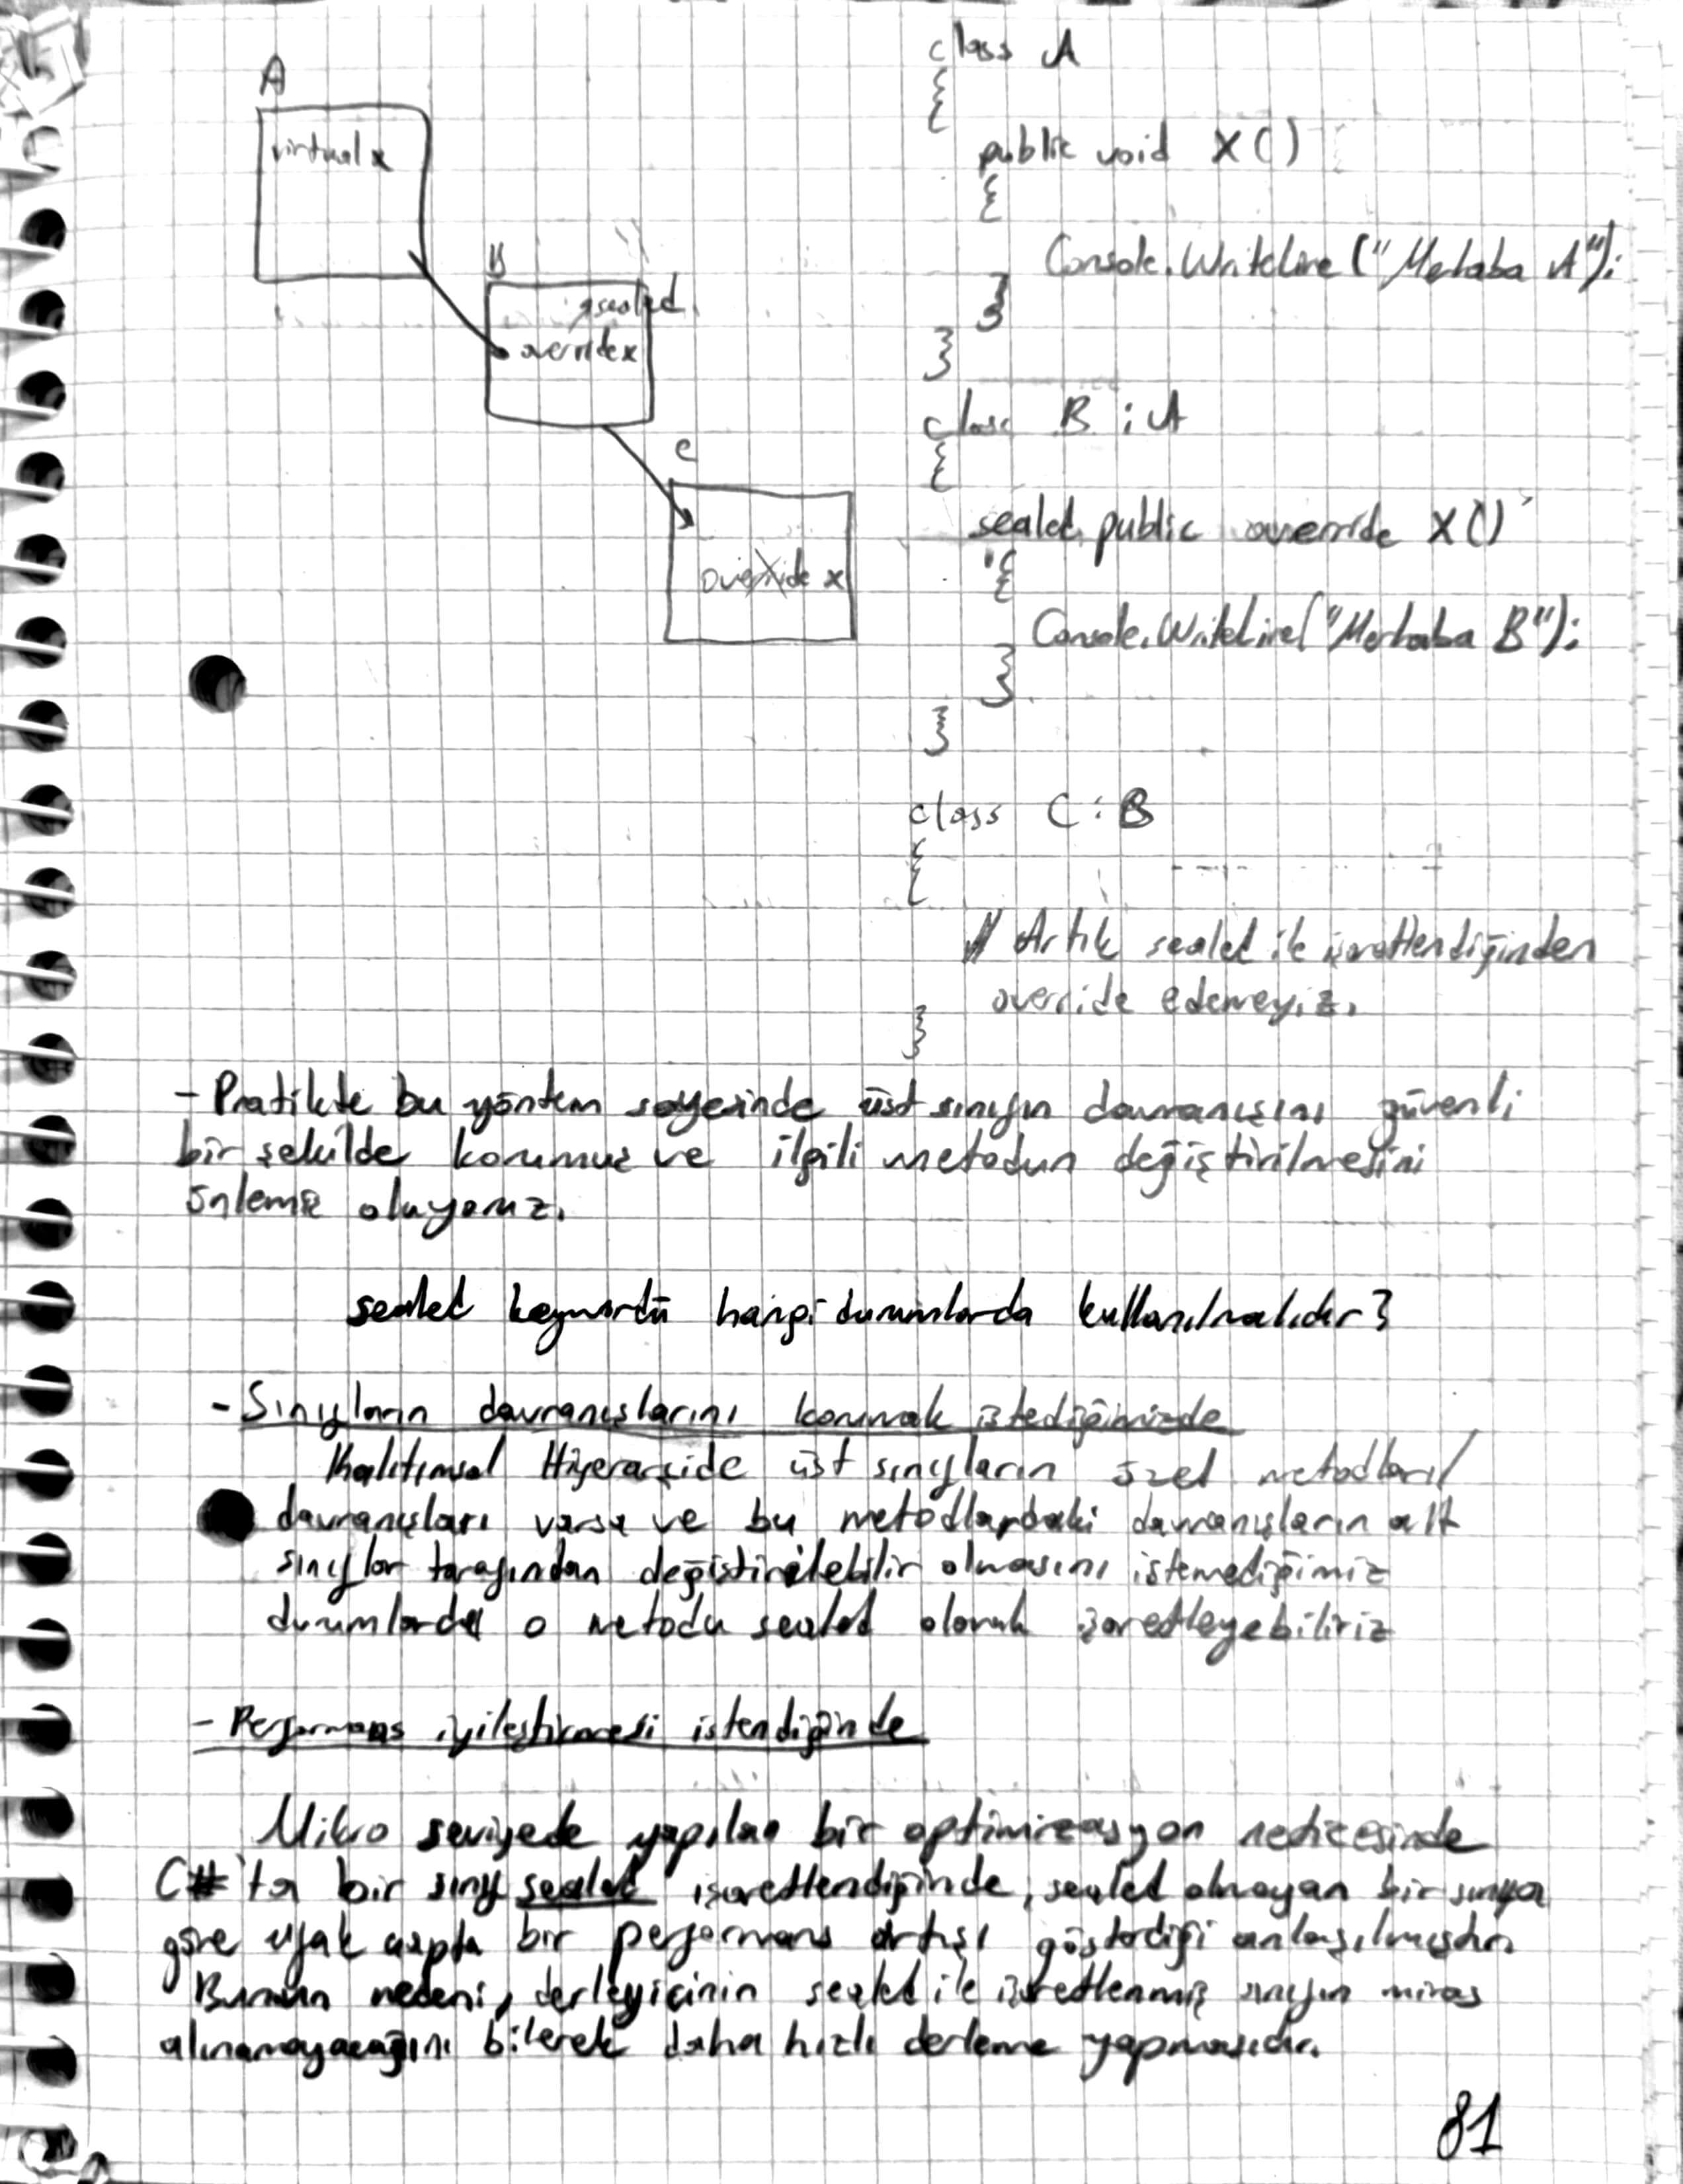 A
virtual x
B
sealed
override x
C
override x
class A
{
public void X()
{
Console.WriteLine("Merhaba A");
}
}
class B : A
{
sealed public override X()
{
Console.WriteLine("Merhaba B");
}
}
class C : B
{
// Artık sealed ile işaretlendiğinden
override edemeyiz.
}
- Pratikte bu yöntem sayesinde üst sınıfın davranışını güvenli
bir şekilde korumuş ve ilgili metodun değiştirilmesini
önlemiş oluyoruz.
sealed keywordü hangi durumlarda kullanılmalıdır?
- Sınıfların davranışlarını korumak istediğimizde
Kalıtımsal Hiyerarşide üst sınıfların özel metodları/
davranışları varsa ve bu metodlardaki davranışların alt
sınıflar tarafından değiştirilebilir olmasını istemediğimiz
durumlarda o metodu sealed olarak işaretleyebiliriz
- Performans iyileştirmesi istendiğinde
Mikro seviyede yapılan bir optimizasyon neticesinde
C#'ta bir sınıf sealed işaretlendiğinde, sealed olmayan bir sınıfa
göre ufak çapta bir performans artışı gösterdiği anlaşılmıştır.
Bunun nedeni, derleyicinin sealed ile işaretlenmiş sınıfın miras
alınamayacağını bilerek daha hızlı derleme yapmasıdır.
81